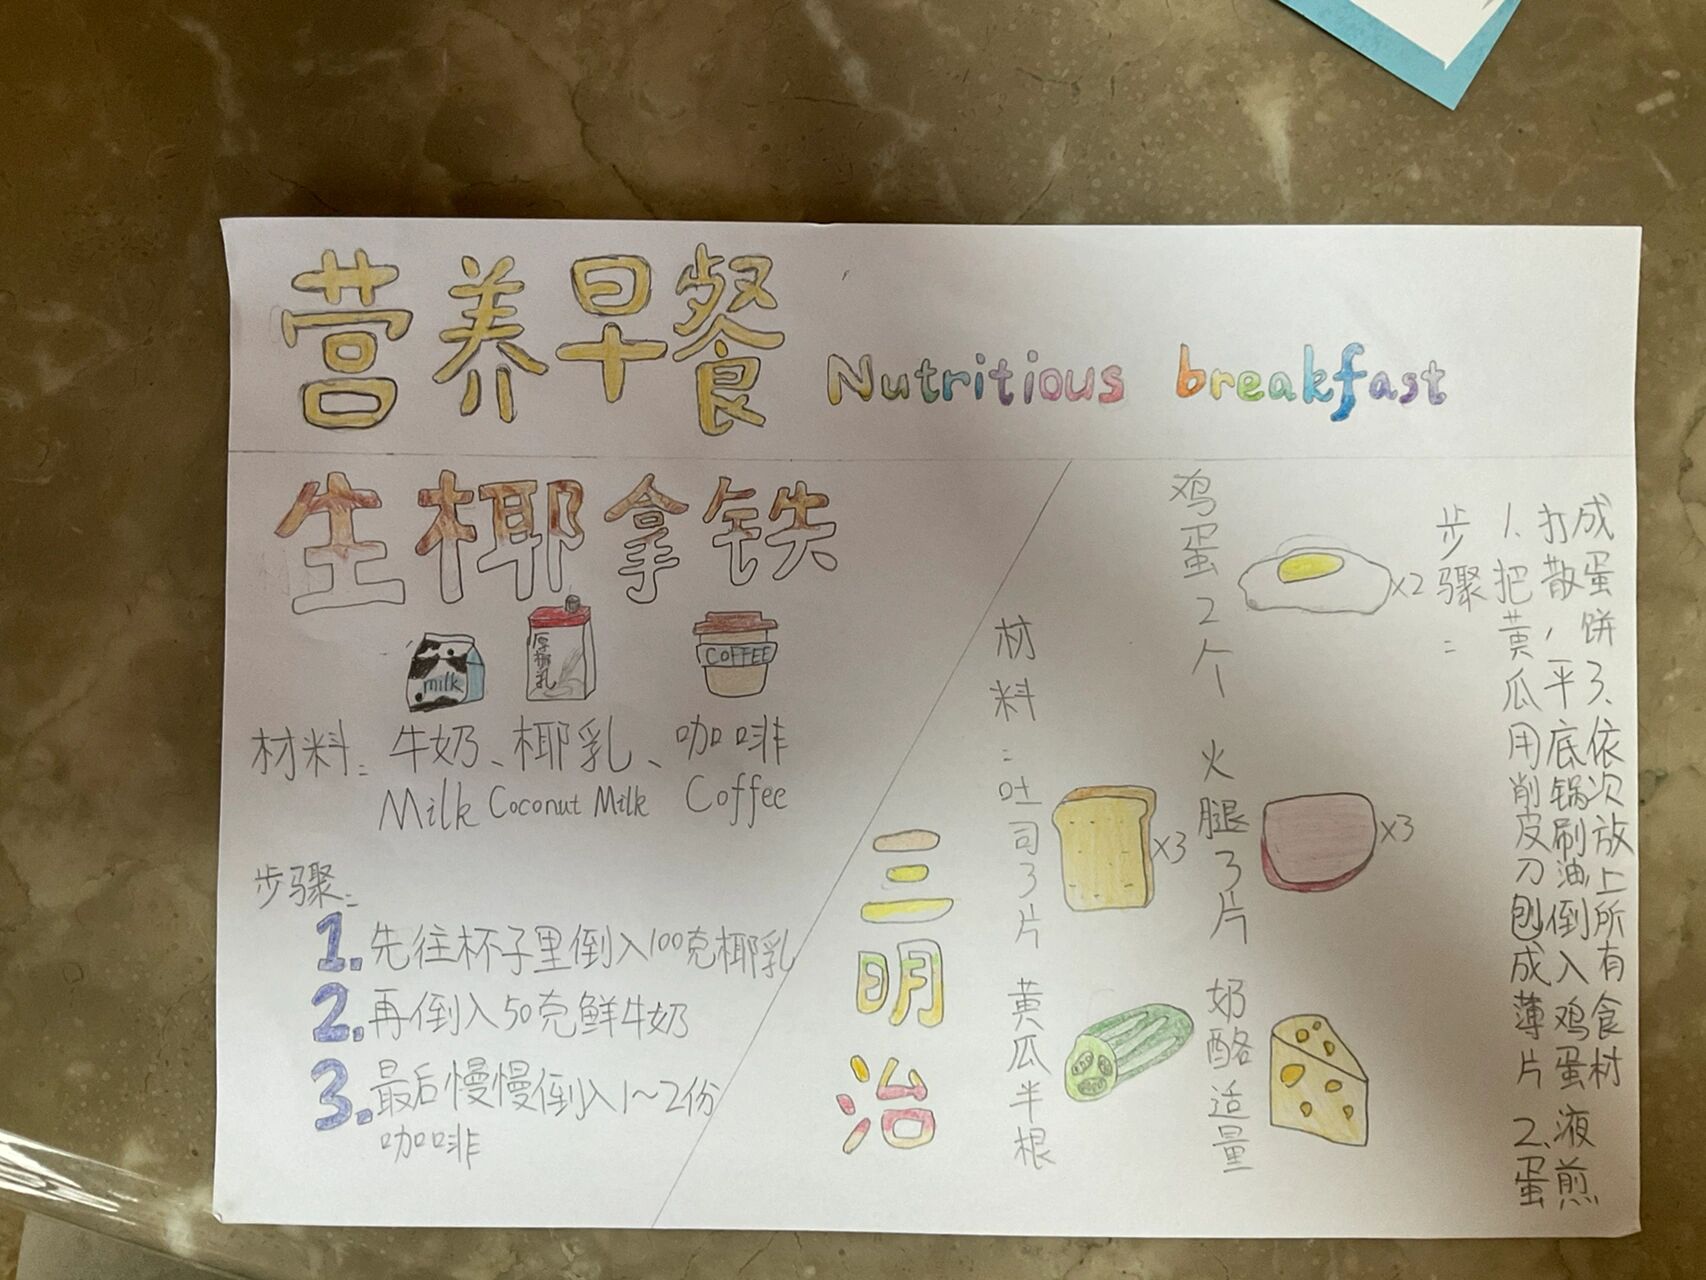 营养早餐 Nutritious breakfast
生椰拿铁
milk
厚椰乳
COFFEE
材料: 牛奶、椰乳、咖啡
Milk Coconut Milk Coffee
步骤:
1.先往杯子里倒入100克椰乳
2.再倒入50克鲜牛奶
3.最后慢慢倒入1～2份
咖啡
三明治
材料:吐司3片 黄瓜半根
×3
鸡蛋2个 火腿3片 奶酪适量
×2
×3
步骤:
1.把黄瓜用削皮刀刨成薄片 2.蛋
打散,平底锅刷油倒入鸡蛋液煎
成蛋饼3.依次放上所有食材